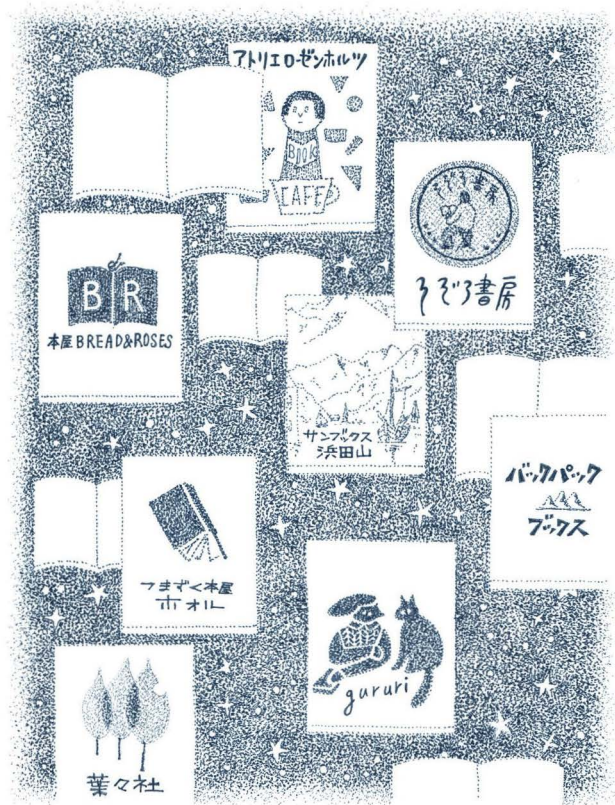 アトリエローゼンホルツ
BOOK
CAFE
そぞろ書房
そぞろ書房
B&R
本屋BREAD&ROSES
サンブックス
浜田山
バックパック
ブックス
つまずく本屋
ホォル
gururi
葉々社